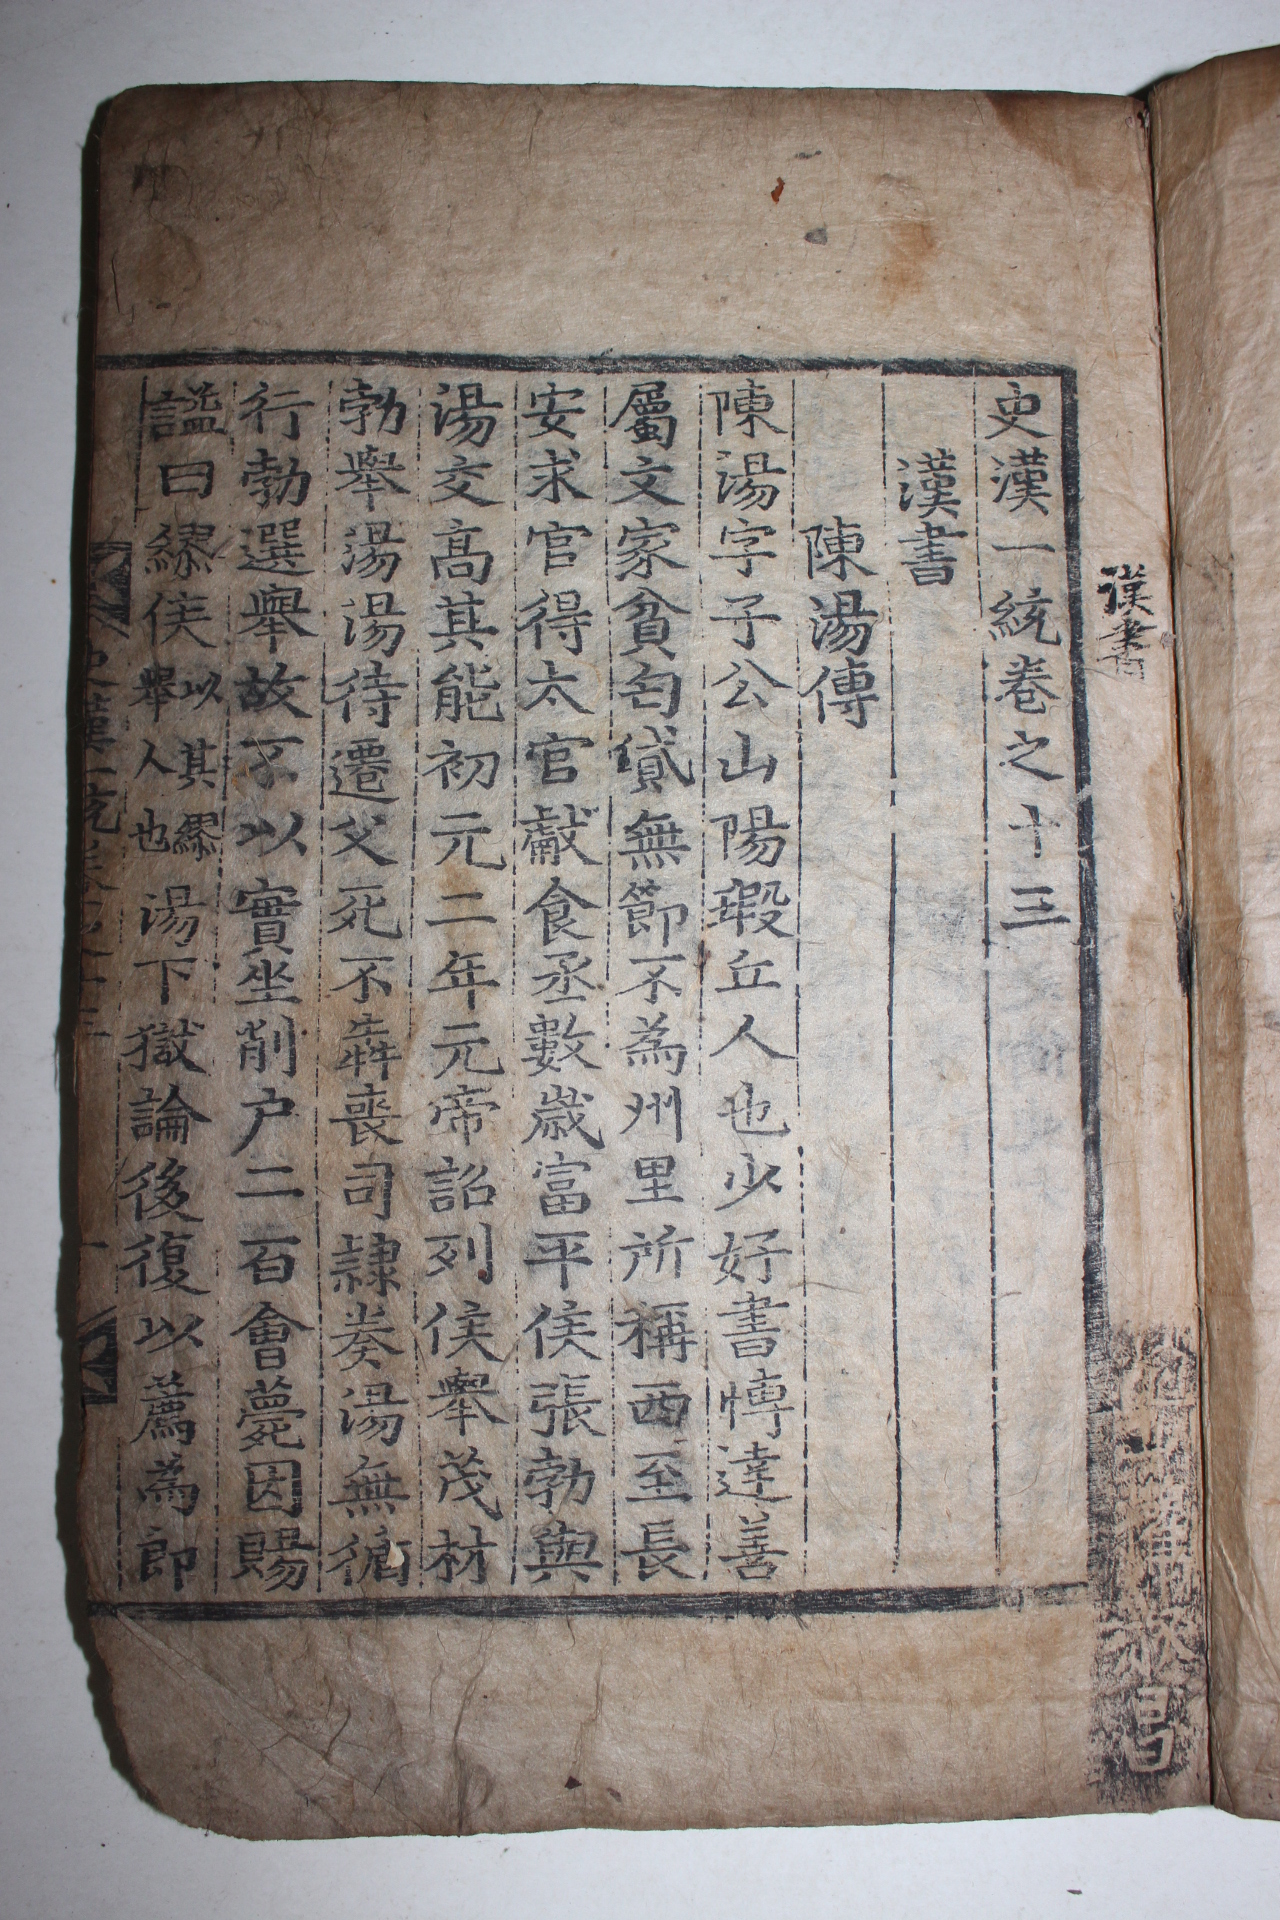 史漢一統卷之十三
漢書
陳湯傳
陳湯字子公山陽瑕丘人也少好書博達善
屬文家貧匄貸無節不為州里所稱西至長
安求官得太官獻食丞數歲富平侯張勃與
湯交高其能初元二年元帝詔列侯舉茂材
勃舉湯湯待遷父死不犇喪司隸奏湯無循
行勃選舉故不以實坐削户二百會薨因賜
諡曰繆侯以其繆舉人也湯下獄論後復以薦為郎
漢書